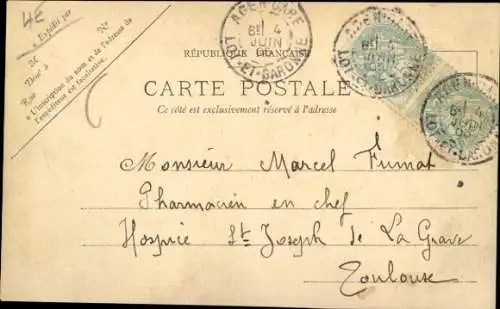 4E
Expédié par
M
Demt à
Rue No
"L'inscription du nom et de l'adresse de
l'expéditeur est facultative.
AGEN GARE
4
JUIN
LOT-ET-GARONNE
AGEN GARE
4
JUIN
LOT-ET-GARONNE
AGEN GARE
4
JUIN
LOT-ET-GARONNE
RÉPUBLIQUE FRANÇAISE
CARTE POSTALE
Ce côté est exclusivement réservé à l'adresse
Monsieur Marcel Fumat
Pharmacien en chef
Hospice St Joseph de La Grave
Toulouse